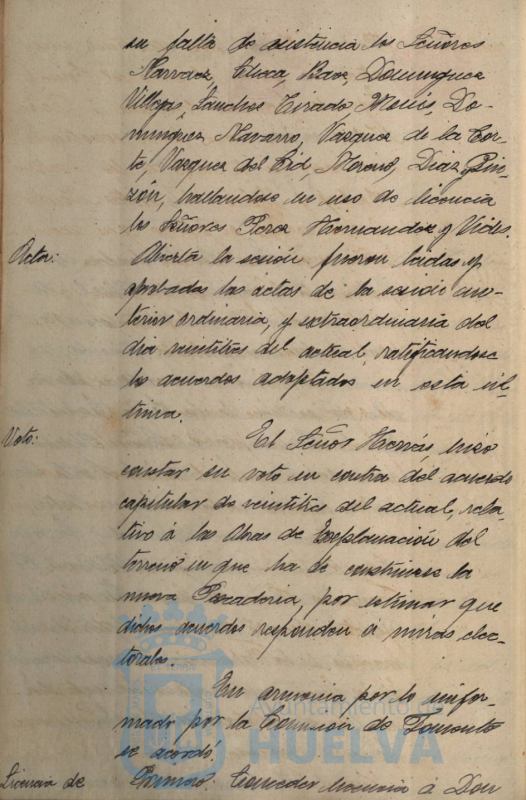 su falta de asistencia los Señores
Narvaez, Checa, Rave, Dominguez
Villegas, Sanchez Tirado, Monís, Do-
minguez Navarro, Vazquez de la Cor-
te, Vazquez del Cid, Moreno, Diaz y Pin-
zón, hallandose en uso de licencia
los Señores Perez Hernandez y Vides.
Acta:
Abierta la sesión fueron leidas y
aprobadas las actas de la sesión an-
terior ordinaria, y extraordinaria del
dia veintitres del actual, ratificandose
los acuerdos adoptados en esta úl-
tima.
Voto:
El Señor hizo
constar su voto en contra del acuerdo
capitular de veintitres del actual, rela-
tivo á las Obras de Explanación del
terreno en que ha de construirse la
nueva Pescaderia, por estimar que
dichos acuerdos responden á miras elec-
torales.
En armonia por lo infor-
mado por la Comisión de Fomento
se acordó.
Licencia de
Primero. Conceder licencia á Don
Ayuntamiento de
HUELVA